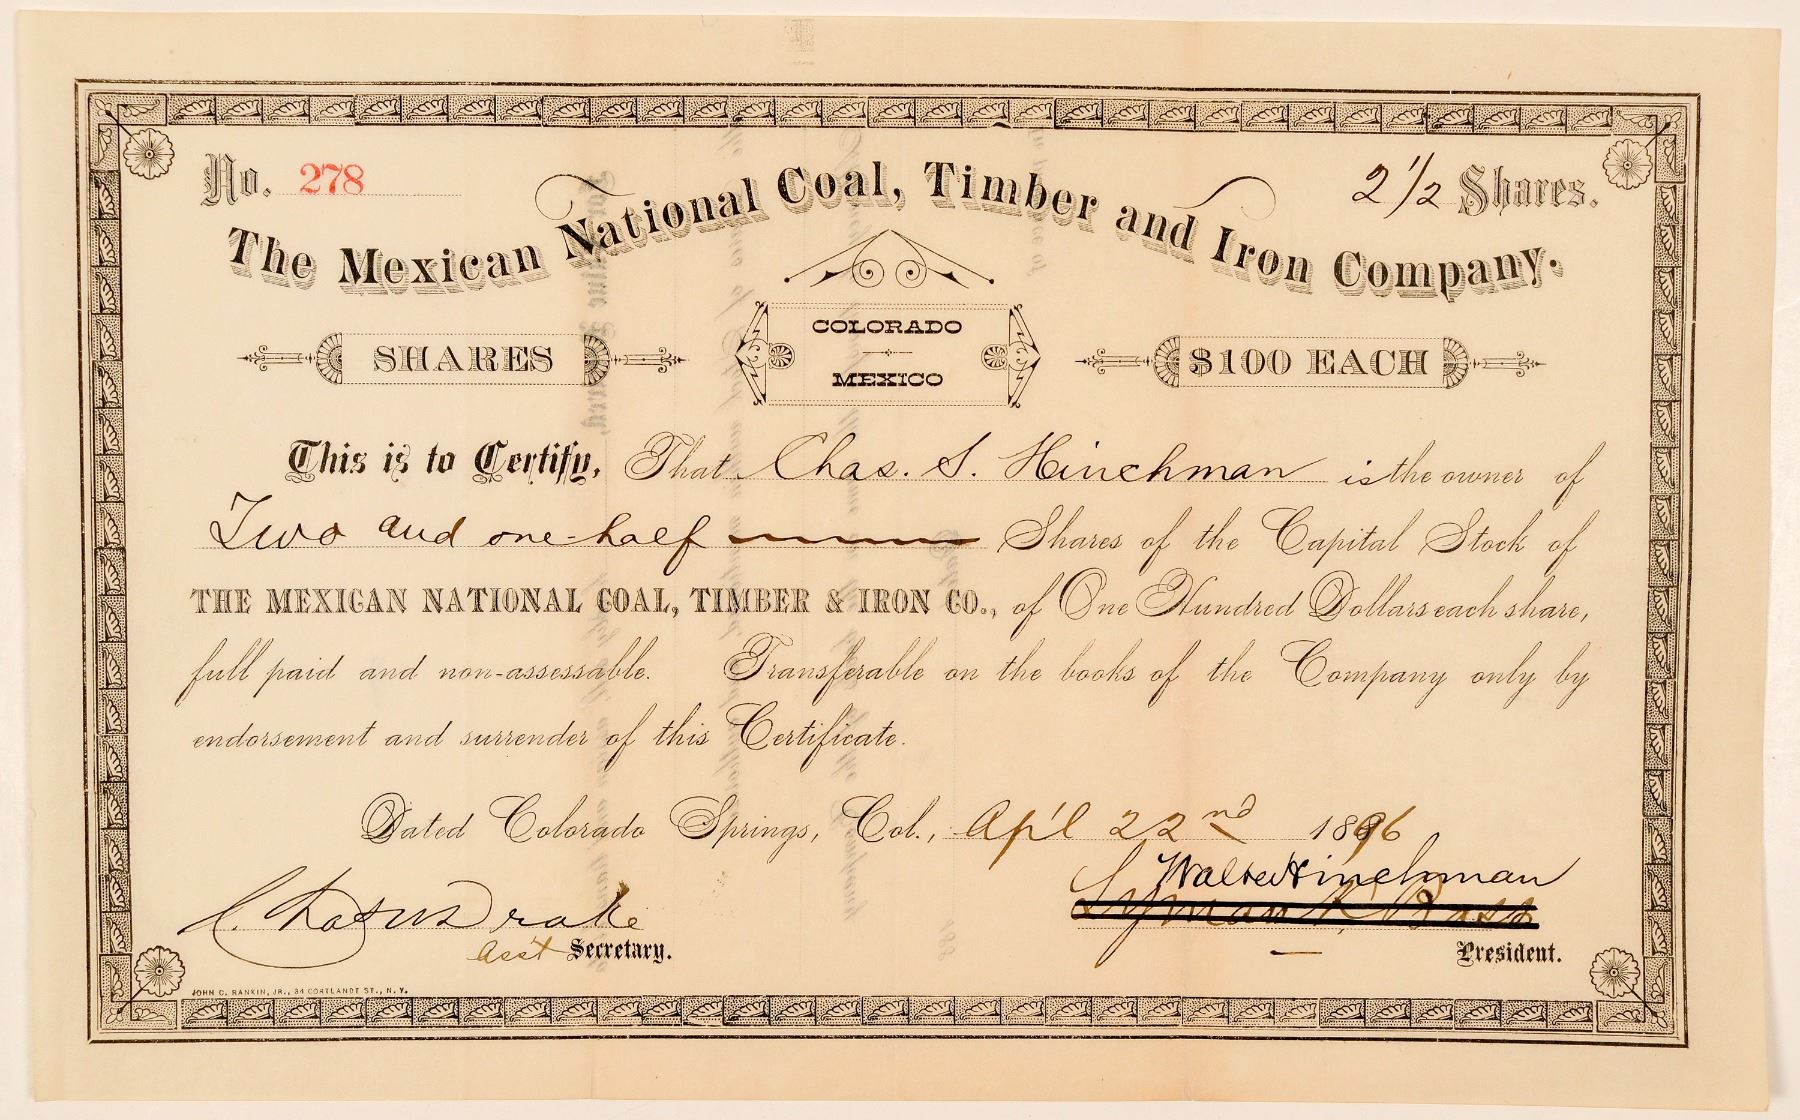 No. 278
2 1/2 Shares.
The Mexican National Coal, Timber and Iron Company.
SHARES
COLORADO
MEXICO
$100 EACH
This is to Certify, That Chas. S. Hinchman is the owner of
Two and one-half Shares of the Capital Stock of
THE MEXICAN NATIONAL COAL, TIMBER & IRON CO., of One Hundred Dollars each share,
full paid and non-assessable. Transferable on the books of the Company only by
endorsement and surrender of this Certificate.
Dated Colorado Springs, Col., Ap'l 22nd 1896
Walter Hinchman
Lyman K. Bass
Drake
Ass't Secretary.
President.
JOHN C. RANKIN, JR., 34 CORTLANDT ST., N. Y.